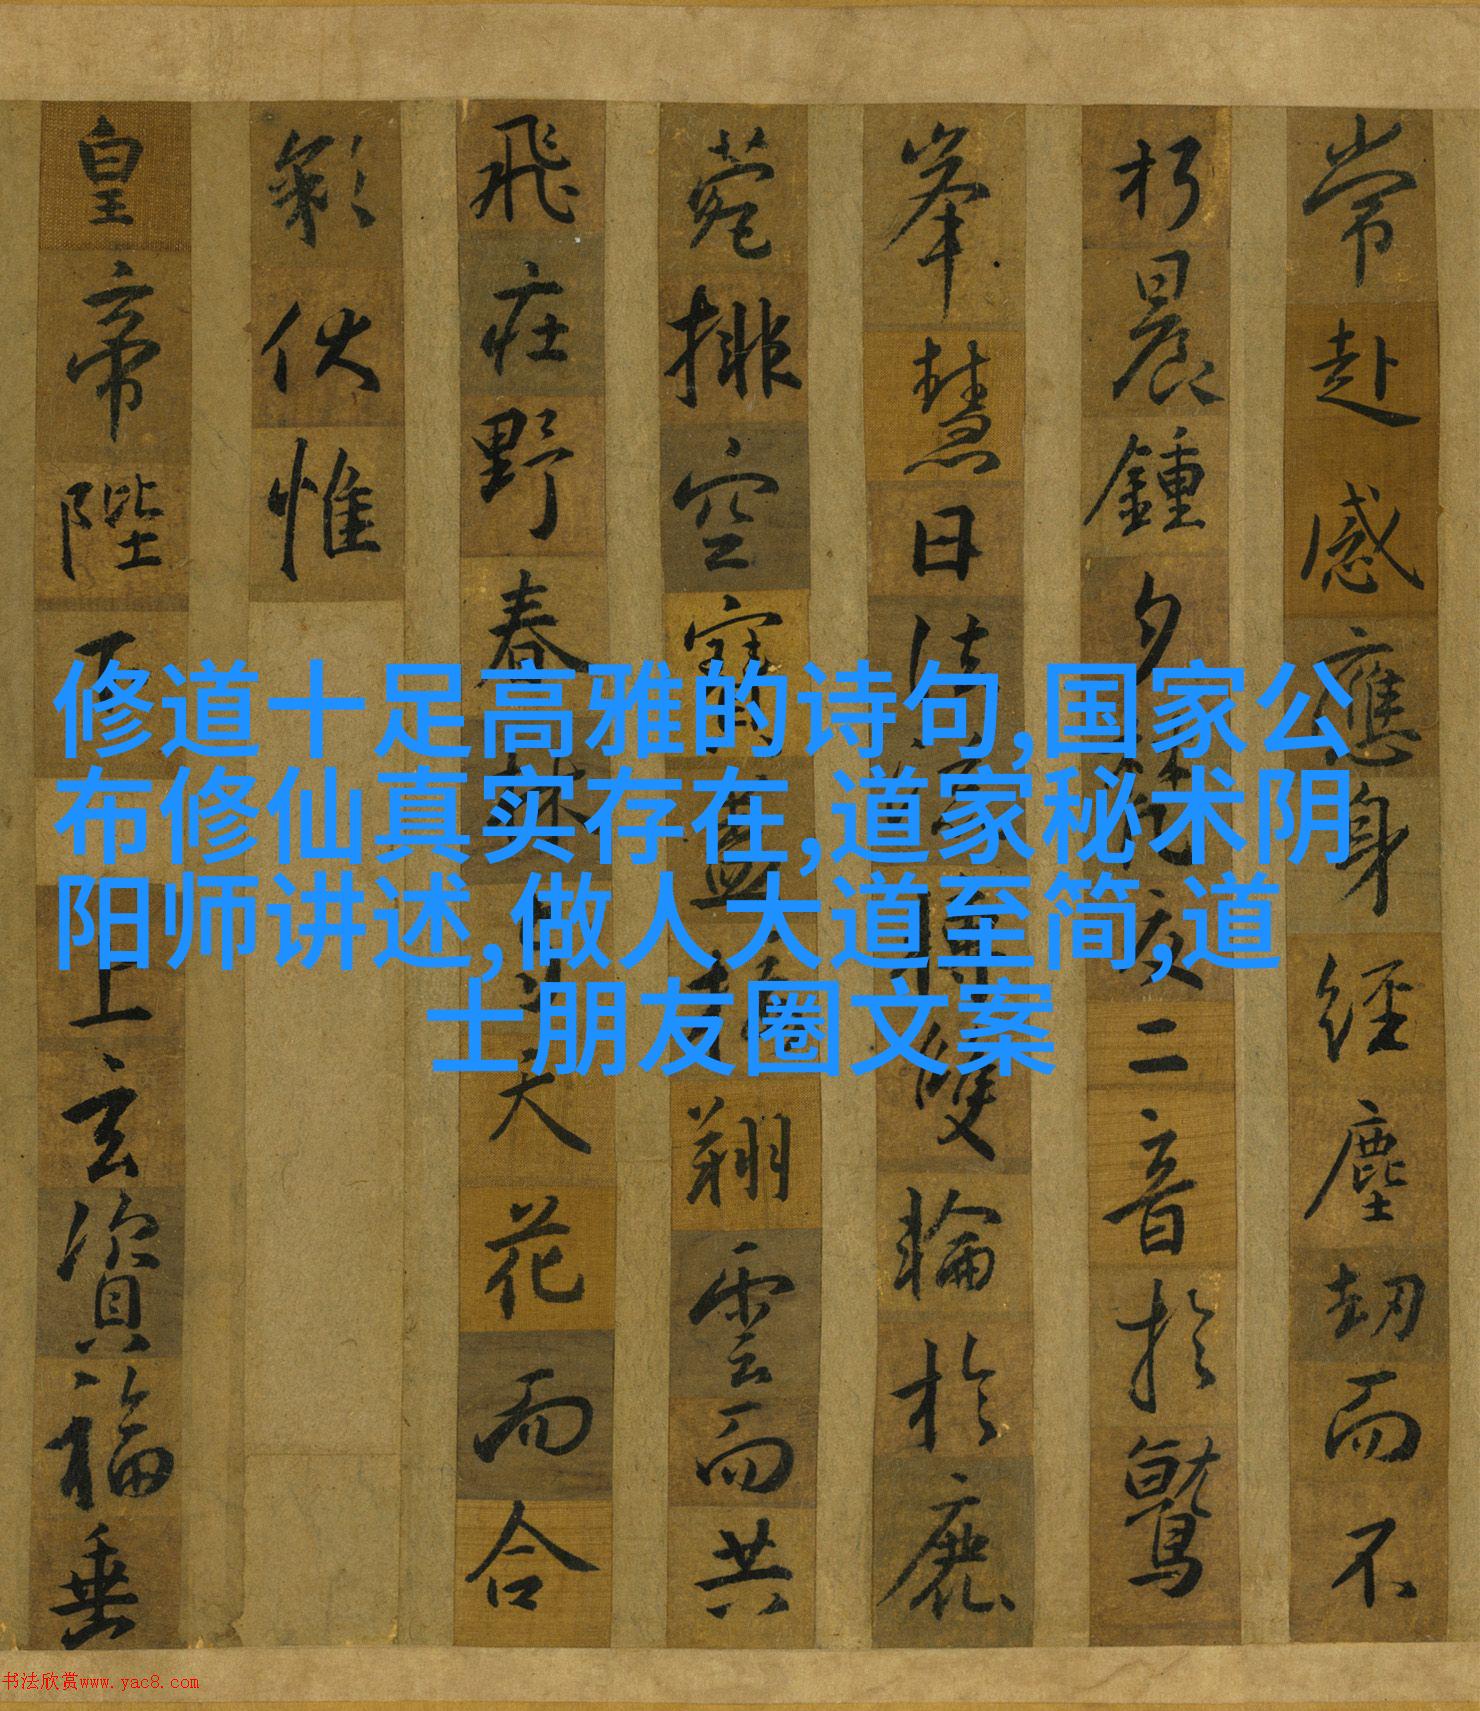 常赴感應身經塵劫而不
朽晨鍾夕梵交二音於鷲
峯慧日法流轉雙輪於鹿
菀排空寶蓋接翔雲而共
飛莊野春林与天花而合
彩伏惟
皇帝陛下上玄資福垂
修道十足高雅的诗句,国家公
布修仙真实存在,道家秘术阴
阳师讲述,做人大道至简,道
士朋友圈文案
书法欣赏www.yac8.com